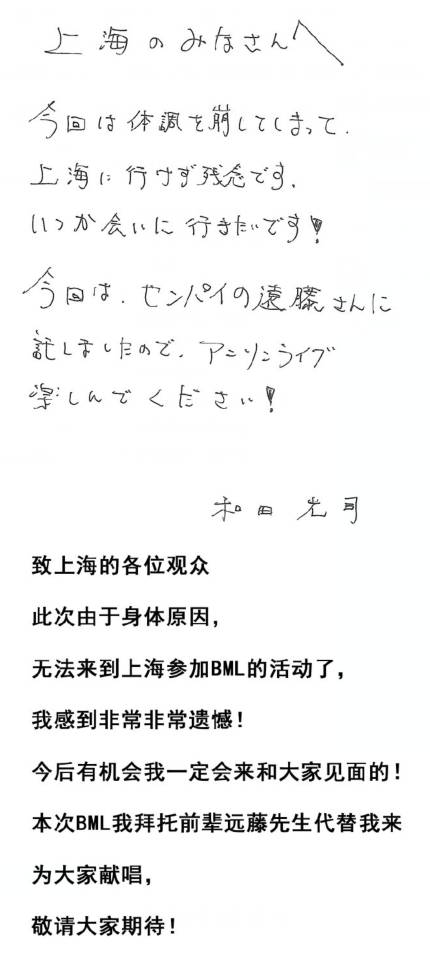 上海のみなさんへ
今回は体調を崩してしまって、
上海に行けず残念です。
いつか会いに行きたいです!
今回は、センパイの遠藤さんに
託しましたので、アニソンライブ
楽しんでください!
和田光司
致上海的各位观众
此次由于身体原因，
无法来到上海参加BML的活动了，
我感到非常非常遗憾！
今后有机会我一定会来和大家见面的！
本次BML我拜托前辈远藤先生代替我来
为大家献唱，
敬请大家期待！